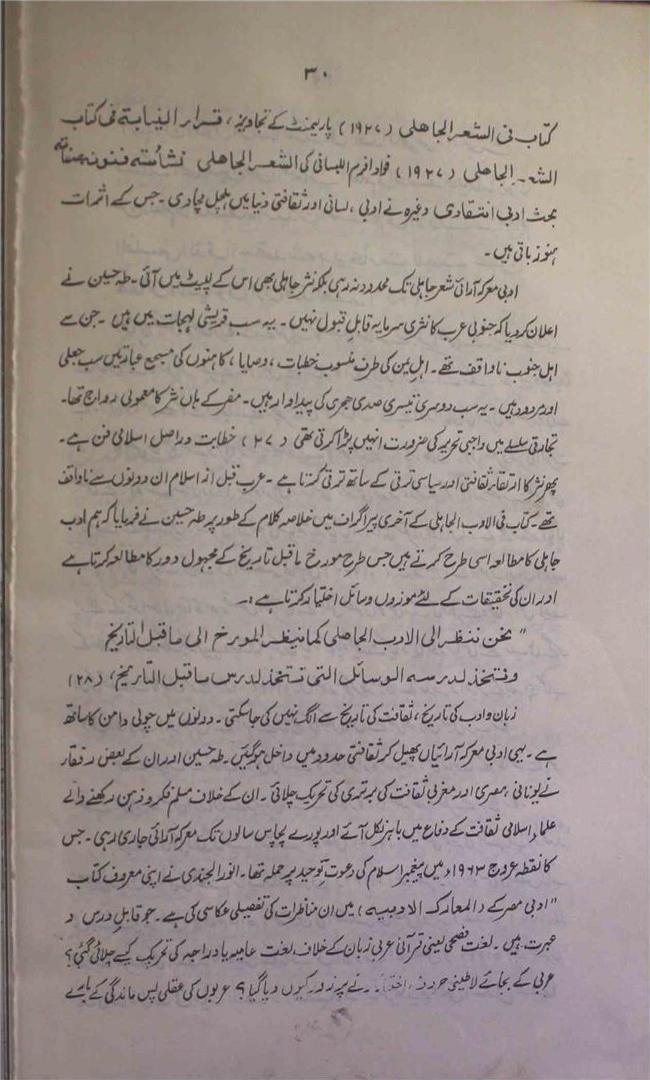 ۳۰
کتاب فی الشعر الجاهلی (۱۹۲۷) پاریمنٹ کے تجاویز، قرار النیابة فی کتاب
الشعر الجاهلی (۱۹۲۷) فواد افرم البسانی کی الشعر الجاهلی نشأته فنونه صفاته
بحث ادبی انتقادی وغیرہ نے ادبی، لسانی اور ثقافتی دنیا میں ہلچل مچا دی۔ جس کے اثرات
ہنوز باقی ہیں۔
ادبی معرکہ آرائی شعر جاہلی تک محدود نہ رہی بلکہ نثر جاہلی بھی اس کے لپیٹ میں آئی۔ طہ حسین نے
اعلان کر دیا کہ جنوبی عرب کا نثری سرمایہ قابلِ قبول نہیں۔ یہ سب قریشی لہجات میں ہیں۔ جن سے
اہل جنوب ناواقف تھے۔ اہلِ یمن کی طرف منسوب خطبات، وصایا، کاہنوں کی مسجع عبارتیں سب جعلی
اور مردود ہیں۔ یہ سب دوسری تیسری صدی ہجری کی پیداوار ہیں۔ مضر کے ہاں نثر کا معمولی رواج تھا۔
تجارتی سلسلے میں واجبی تحریر کی ضرورت انہیں پڑا کرتی تھی (۲۷) خطابت دراصل اسلامی فن ہے۔
پھر نثر کا ارتقار ثقافتی اور سیاسی ترقی کے ساتھ ترقی کرتا ہے۔ عرب قبل از اسلام ان دونوں سے ناواقف
تھے۔ کتاب فی الادب الجاہلی کے آخری پیراگراف میں خلاصہ کلام کے طور پر طہ حسین نے فرمایا کہ ہم ادب
جاہلی کا مطالعہ اسی طرح کرتے ہیں جس طرح مورخ ماقبل تاریخ کے مجہول دور کا مطالعہ کرتا ہے
اور ان کی تحقیقات کے لئے موزوں وسائل اختیار کرتا ہے :۔
"نحن ننظر الی الادب الجاهلی کما ینظر المورخ الی ما قبل التاریخ
ونتخذ لدرسه الوسائل التی تتخذ لدرس ما قبل التاریخ، (۲۸)
زبان و ادب کی تاریخ، ثقافت کی تاریخ سے الگ نہیں کی جا سکتی۔ دونوں میں چولی دامن کا ساتھ
ہے۔ یہی ادبی معرکہ آرائیاں پھیل کر ثقافتی حدود میں داخل ہو گئیں۔ طہ حسین اور ان کے بعض رفقار
نے یونانی، مصری اور مغربی ثقافت کی برتری کی تحریک چلائی۔ ان کے خلاف مسلم فکر و ذہن رکھنے والے
علماء اسلامی ثقافت کے دفاع میں باہر نکل آئے اور پورے پچاس سالوں تک معرکہ آرائی جاری رہی۔ جس
کا نقطہ عروج ۱۹۶۳ء میں پیغمبر اسلام کی دعوت توحید پر حملہ تھا۔ انور الجندی نے اپنی معروف کتاب
"ادبی معرکے (المعارک الادبیہ) میں ان مناظرات کی تفصیلی عکاسی کی ہے۔ جو قابل درس و
عبرت ہیں۔ لغت فصحی یعنی قرآنی عربی زبان کے خلاف لغت عامیہ یا دراجہ کی تحریک کیسے چلائی گئی؟
عربی کے بجائے لاطینی حروف نے پر زور کیوں دیا گیا؟ عربوں کی عقلی پس ماندگی کے بارے